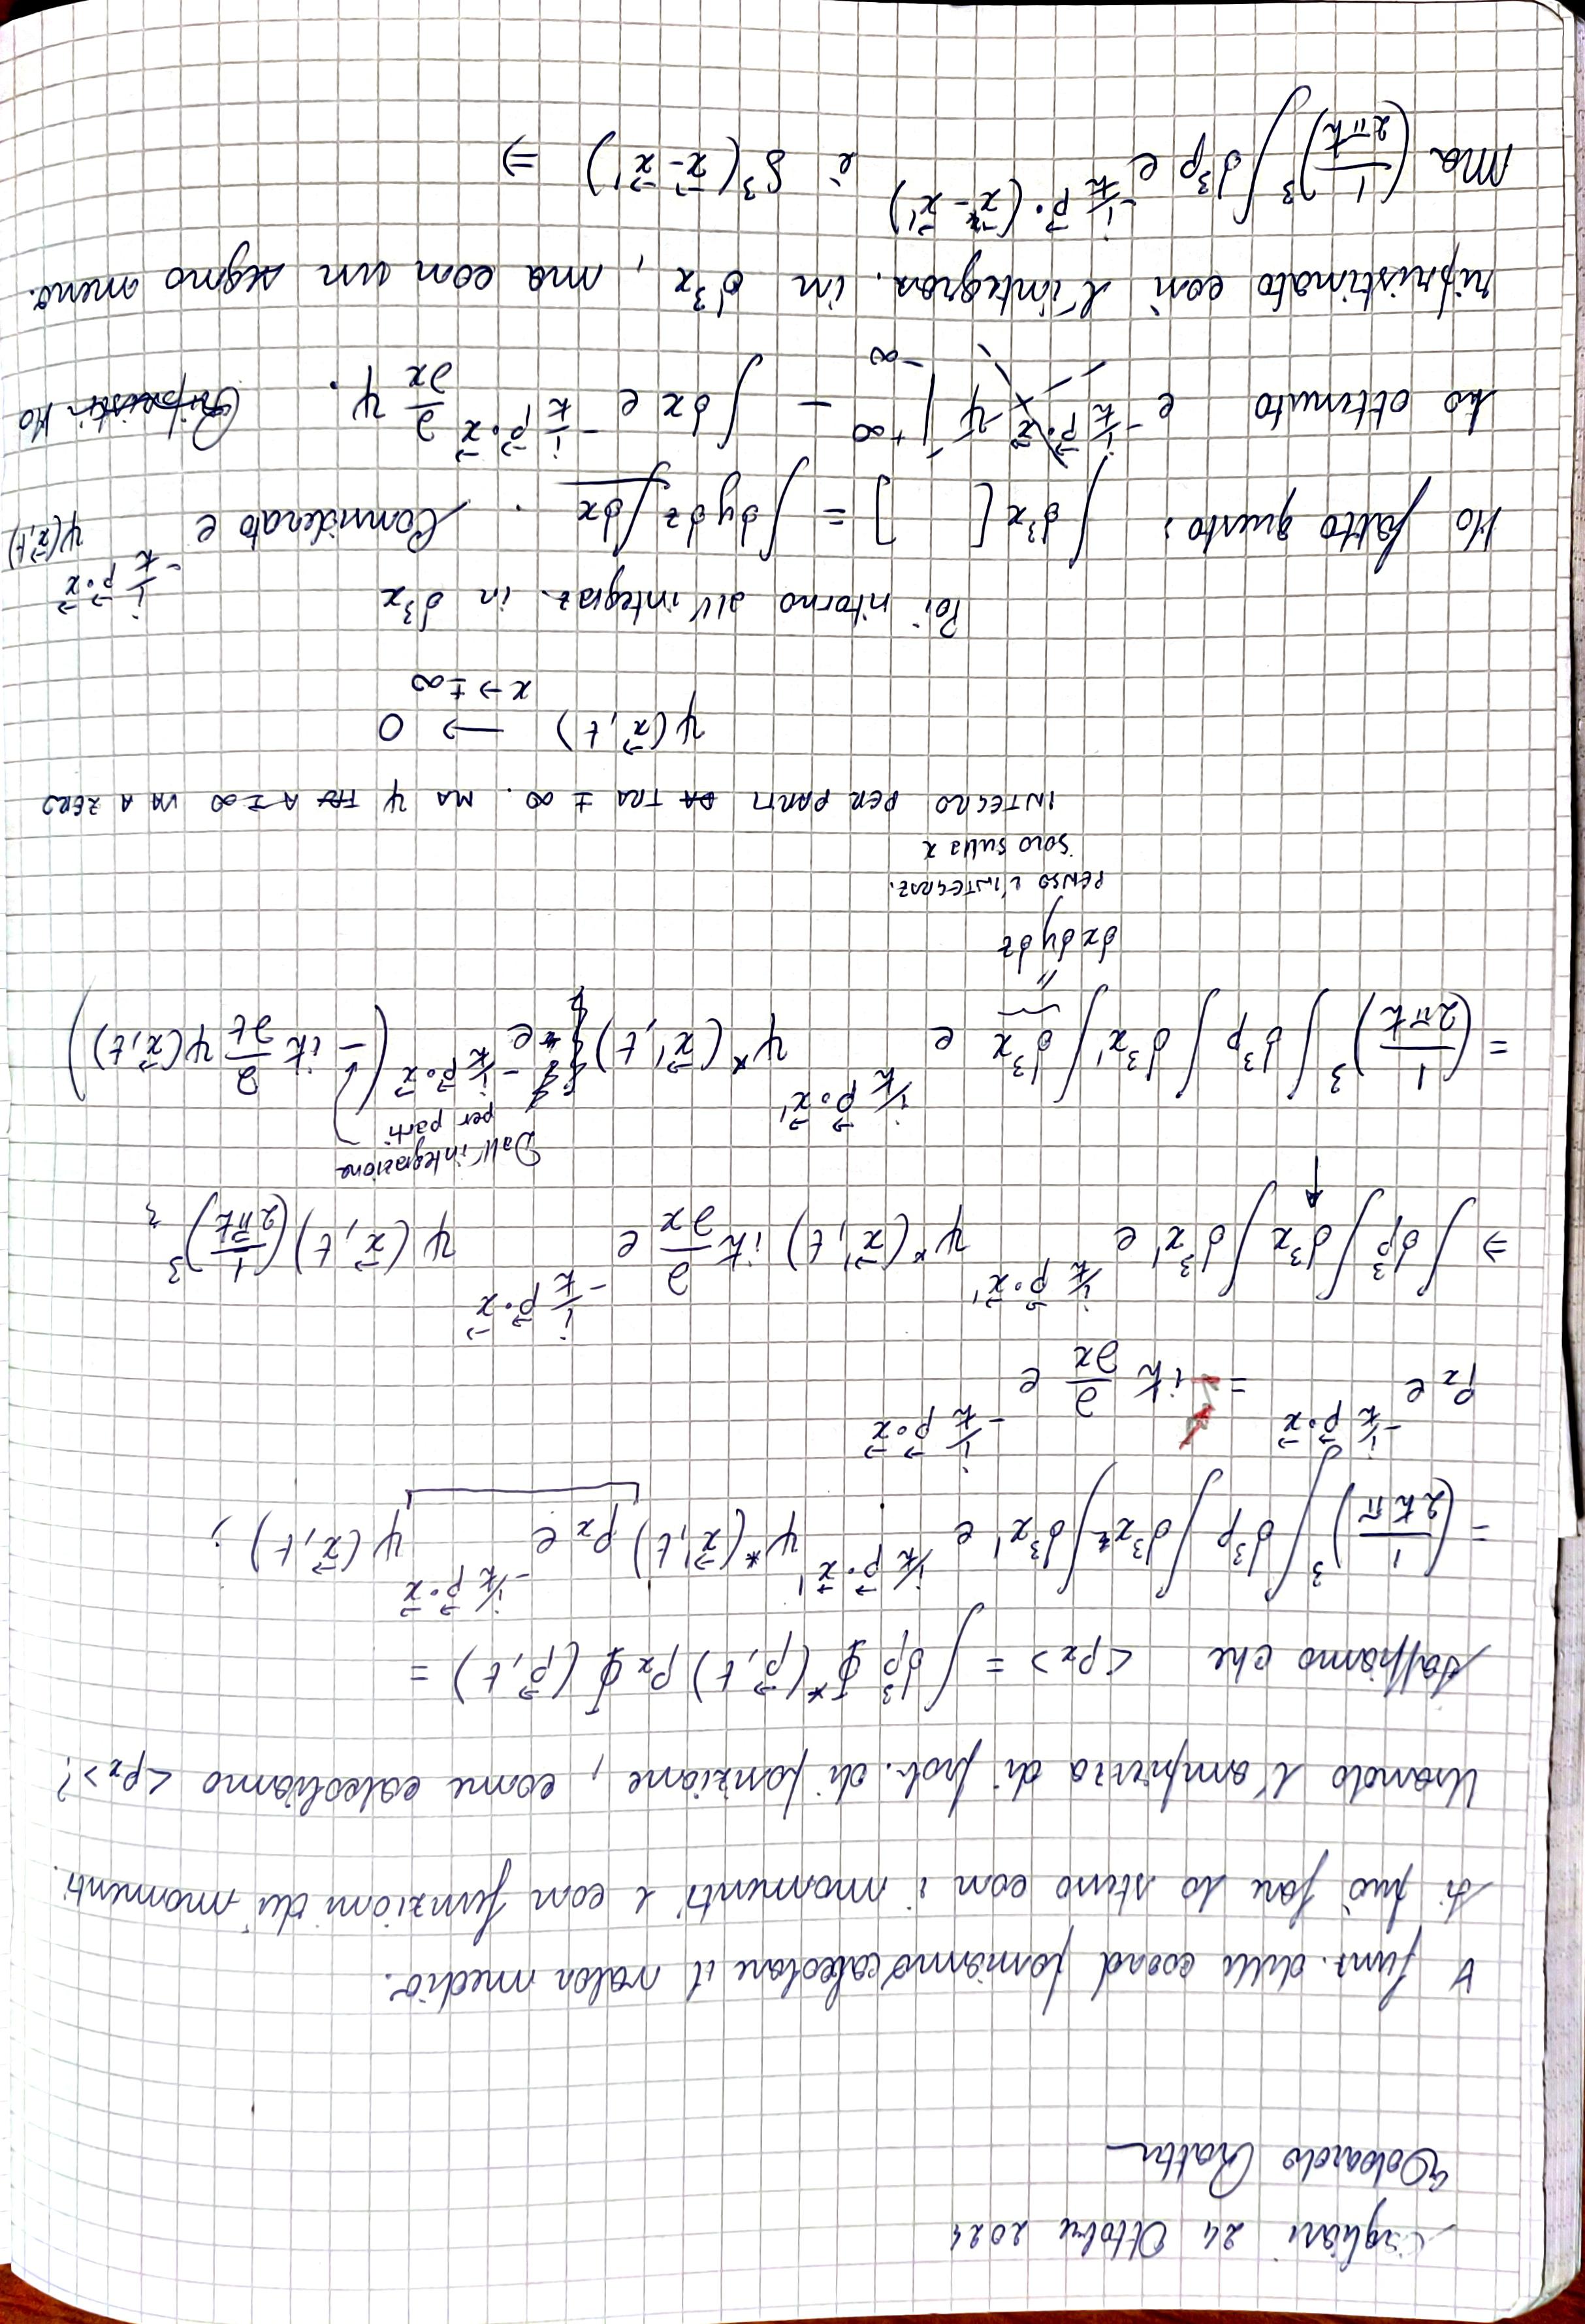 Cagliari 24 Ottobre 2024
Edoardo
A funz. delle coord possiamo calcolare il valor medio.
Si può fare lo stesso con i momenti e con funzioni dei momenti.
Usando l'ampiezza di prob. di posizione, come calcoliamo <pₓ>?
Sappiamo che <pₓ> = ∫d³p Φ*(p⃗,t) pₓ Φ(p⃗,t) =
= (1/2ħπ)³ ∫d³p ∫d³x ∫d³x' e^{i/ħ p⃗·x⃗'} ψ*(x⃗',t) pₓ e^{-i/ħ p⃗·x⃗} ψ(x⃗,t) ;
pₓ e^{-i/ħ p⃗·x⃗} = iħ ∂/∂x e^{-i/ħ p⃗·x⃗}
⇒ ∫d³p ∫d³x ∫d³x' e^{i/ħ p⃗·x⃗'} ψ*(x⃗',t) iħ ∂/∂x e^{-i/ħ p⃗·x⃗} ψ(x⃗,t) (1/2πħ)³
Dall'integrazione
per parti
= (1/2πħ)³ ∫d³p ∫d³x' ∫d³x e^{i/ħ p⃗·x⃗'} ψ*(x⃗',t) e^{-i/ħ p⃗·x⃗} (-iħ ∂/∂t ψ(x⃗,t))
dxdydz
PENSO L'INTEGRAZ.
SOLO SULLA x
INTEGRO PER PARTI TRA ±∞. MA ψ A ±∞ VA A ZERO
ψ(x⃗,t) → 0
x→±∞
Poi ritorno all'integraz. in d³x
Ho fatto questo: ∫d³x [ ] = ∫dydz ∫dx . Considerato e^{-i/ħ p⃗·x⃗} ψ(x⃗,t)
ho ottenuto e^{-i/ħ p⃗·x⃗} ψ |_{-∞}^{+∞} - ∫dx e^{-i/ħ p⃗·x⃗} ∂/∂x ψ. Ho
ripristinato così l'integraz. in d³x, ma con un segno meno.
Ma (1/2πħ)³ ∫d³p e^{-i/ħ p⃗·(x⃗-x⃗')} è δ³(x⃗-x⃗') ⇒